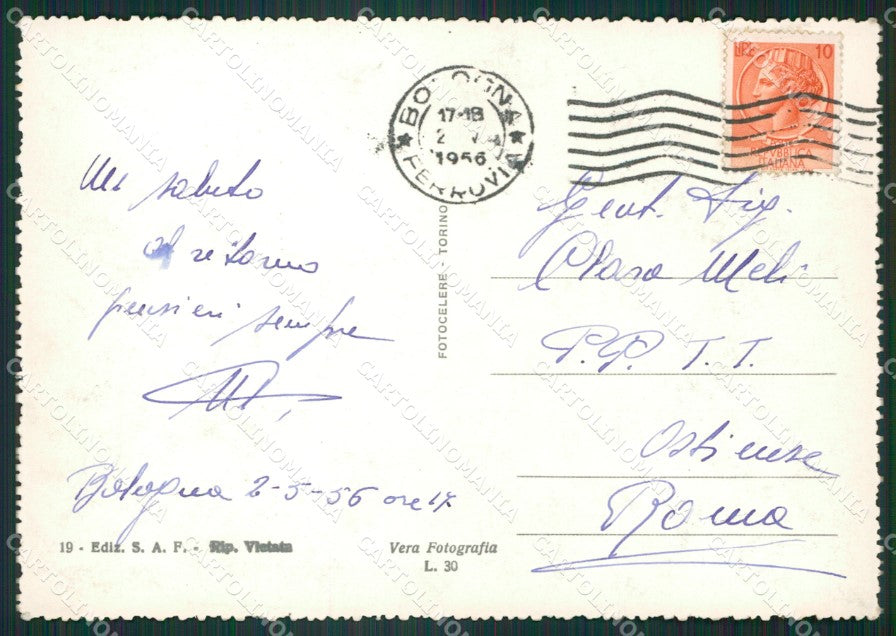 BOLOGNA
17-18
2 1956
FERROVIA
LIRE 10
REPUBBLICA
ITALIANA
Un saluto
al ritorno
pensieri sempre
Bologna 2-5-56 ore 17
19 - Ediz. S. A. F. - Rip. Vietata
Vera Fotografia
L. 30
FOTOCELERE TORINO
Gent. Sig.
Clara Meli
P.P. T.T.
Ostiense
Roma
CARTOLINOMANIA